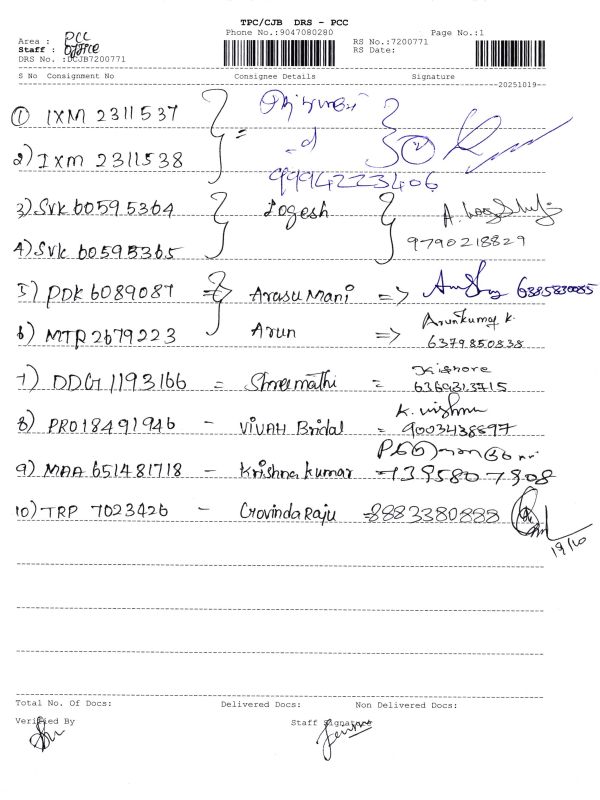 TPC/CJB DRS - PCC
Phone No.:9047080280 Page No.:1
Area : PCC RS No.:7200771
Staff : OFFICE RS Date:
DRS No. :DCJB7200771
S No Consignment No Consignee Details Signature
20251019
1) IXM 2311537
2) IXM 2311538 = 2
9994223406
3) SVK 60595364 Logesh
4) SVK 60595365 9790218829
5) PDK 6089087 => Arasu Mani => 6385830085
6) MTP 2679223 Arun => Arunkumar K.
6379850838
7) DDG 1193166 = Shreemathi = Kishore
6369313715
8) PRO 18491946 - VIVAH Bridal = K. vishnu
9003438897
9) MAA 651481718 - Krishna kumar - 7395807908
10) TRP 7023426 - Govinda Raju - 8883380888
19/10
Total No. Of Docs: Delivered Docs: Non Delivered Docs:
Verified By Staff Signature